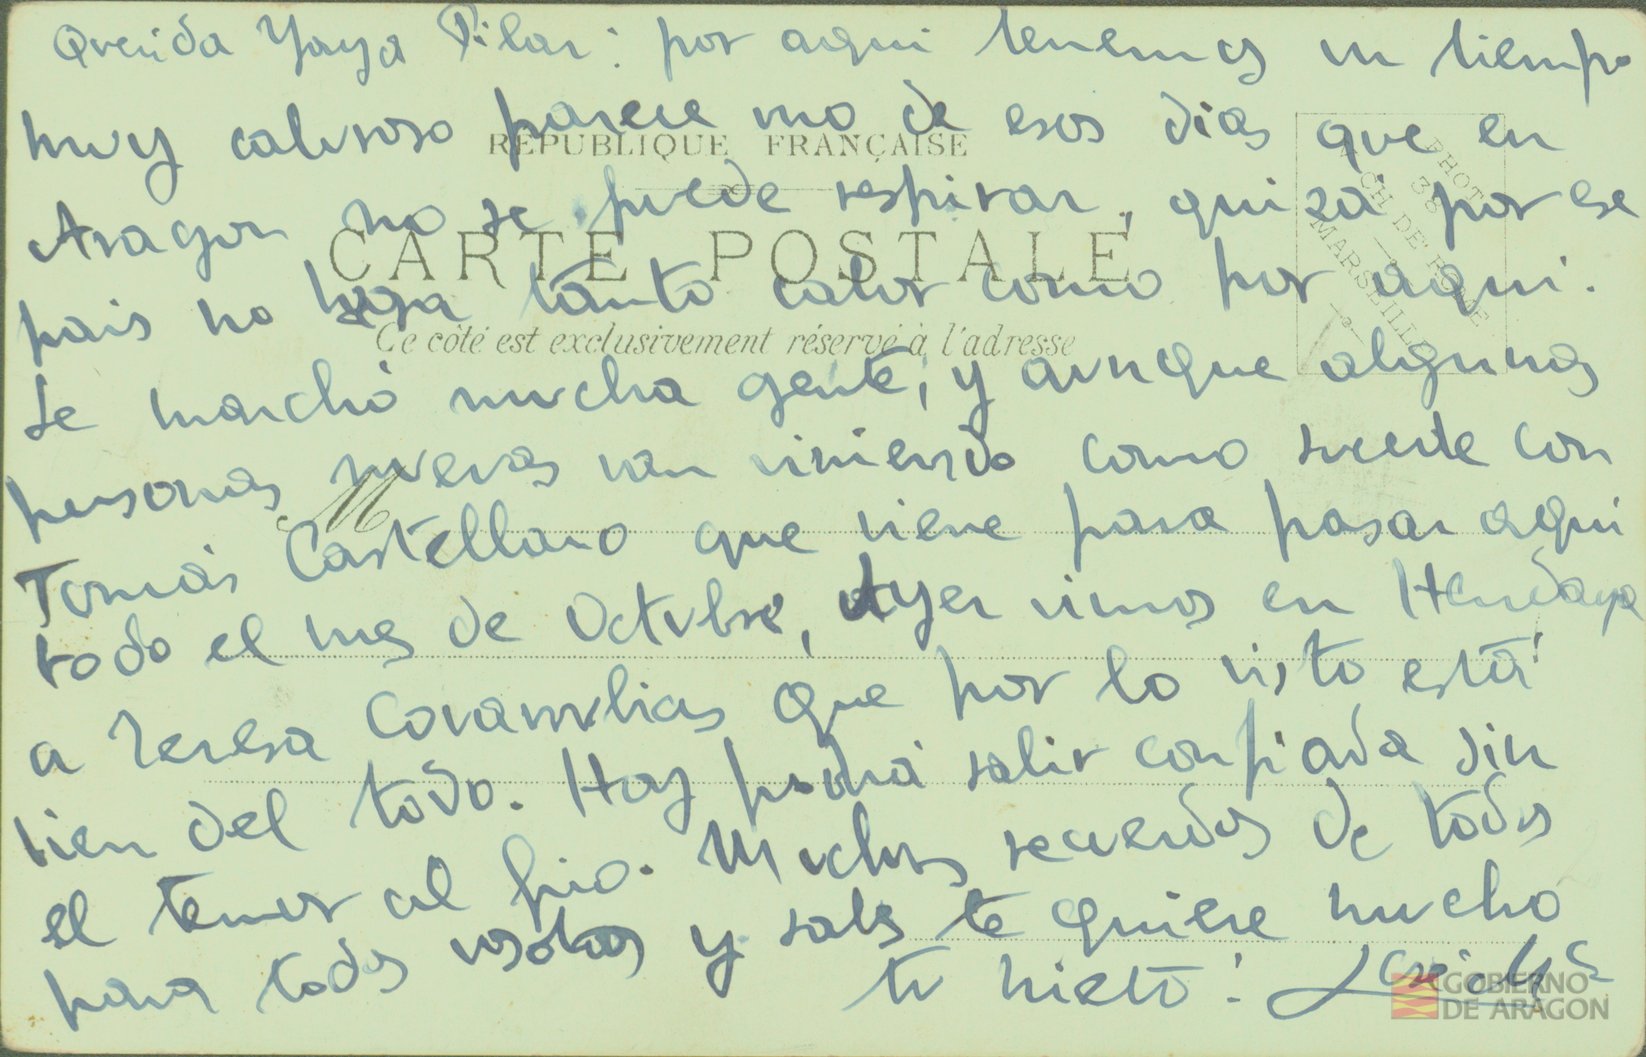 Querida Yaya Pilar: por aqui tenemos un tiempo
muy caluroso parece uno de esos dias que en
RÉPUBLIQUE FRANÇAISE
Aragon no se puede respirar, quizá por ese
CARTE POSTALE
pais no haga tanto calor como por aqui.
Ce côté est exclusivement réservé à l'adresse
PHOT
MARSEILLE
Se marchó mucha gente, y aunque algunas
personas nuevas van viniendo como sucede con
M
Tomás Castellano que viene para pasar aqui
todo el mes de Octubre, Ayer vimos en Hendaya
a Teresa Covarrubias que por lo visto está
bien del todo. Hoy podrá salir confiada sin
el temor al frio. Muchos recuerdos de todos
para todos vosotros y sabes te quiere mucho
tu nieto:
GOBIERNO
DE ARAGON